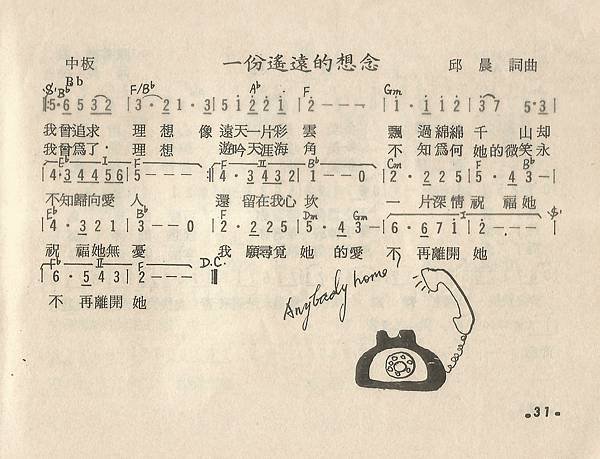 中板 一份遙遠的想念 邱晨 詞曲
Bb
𝄋 Bb F/Bb Ab F Gm
|5·6 5 3 2 |3· 2 1 ·3 |5 1̇ 2̇ 2̇ 1̇ |2̇ — — — |1̇ · 1̇ 1̇ 2̇ |3̇ 7 5·3|
我曾追求 理想 像遠天一片彩雲 飄過綿綿千山却
我曾爲了 理想 遊吟天涯海角 不知爲何她的微笑永
Eb I F F II Bb Cm F Bb
|4·3 4 4 5 6 |5 — — — :||4·2 4 3 2 |1 — — 0 |2·2 2 5 |5·4 3 —|
不知歸向愛人 還留在我心坎 一片深情祝福她
Eb Bb F Dm Gm Eb F I
|4·3 2 1 |3 — — 0 |2·2 2 5 |5·4 3 — |6·6 7 1̇ |2̇ — — —|𝄋
祝福她無憂 我願尋覓她的愛 不再離開她
Eb II F D.C.
|6·5 4 3 |2 — — — ||
不再離開她
Anybady home
.31.